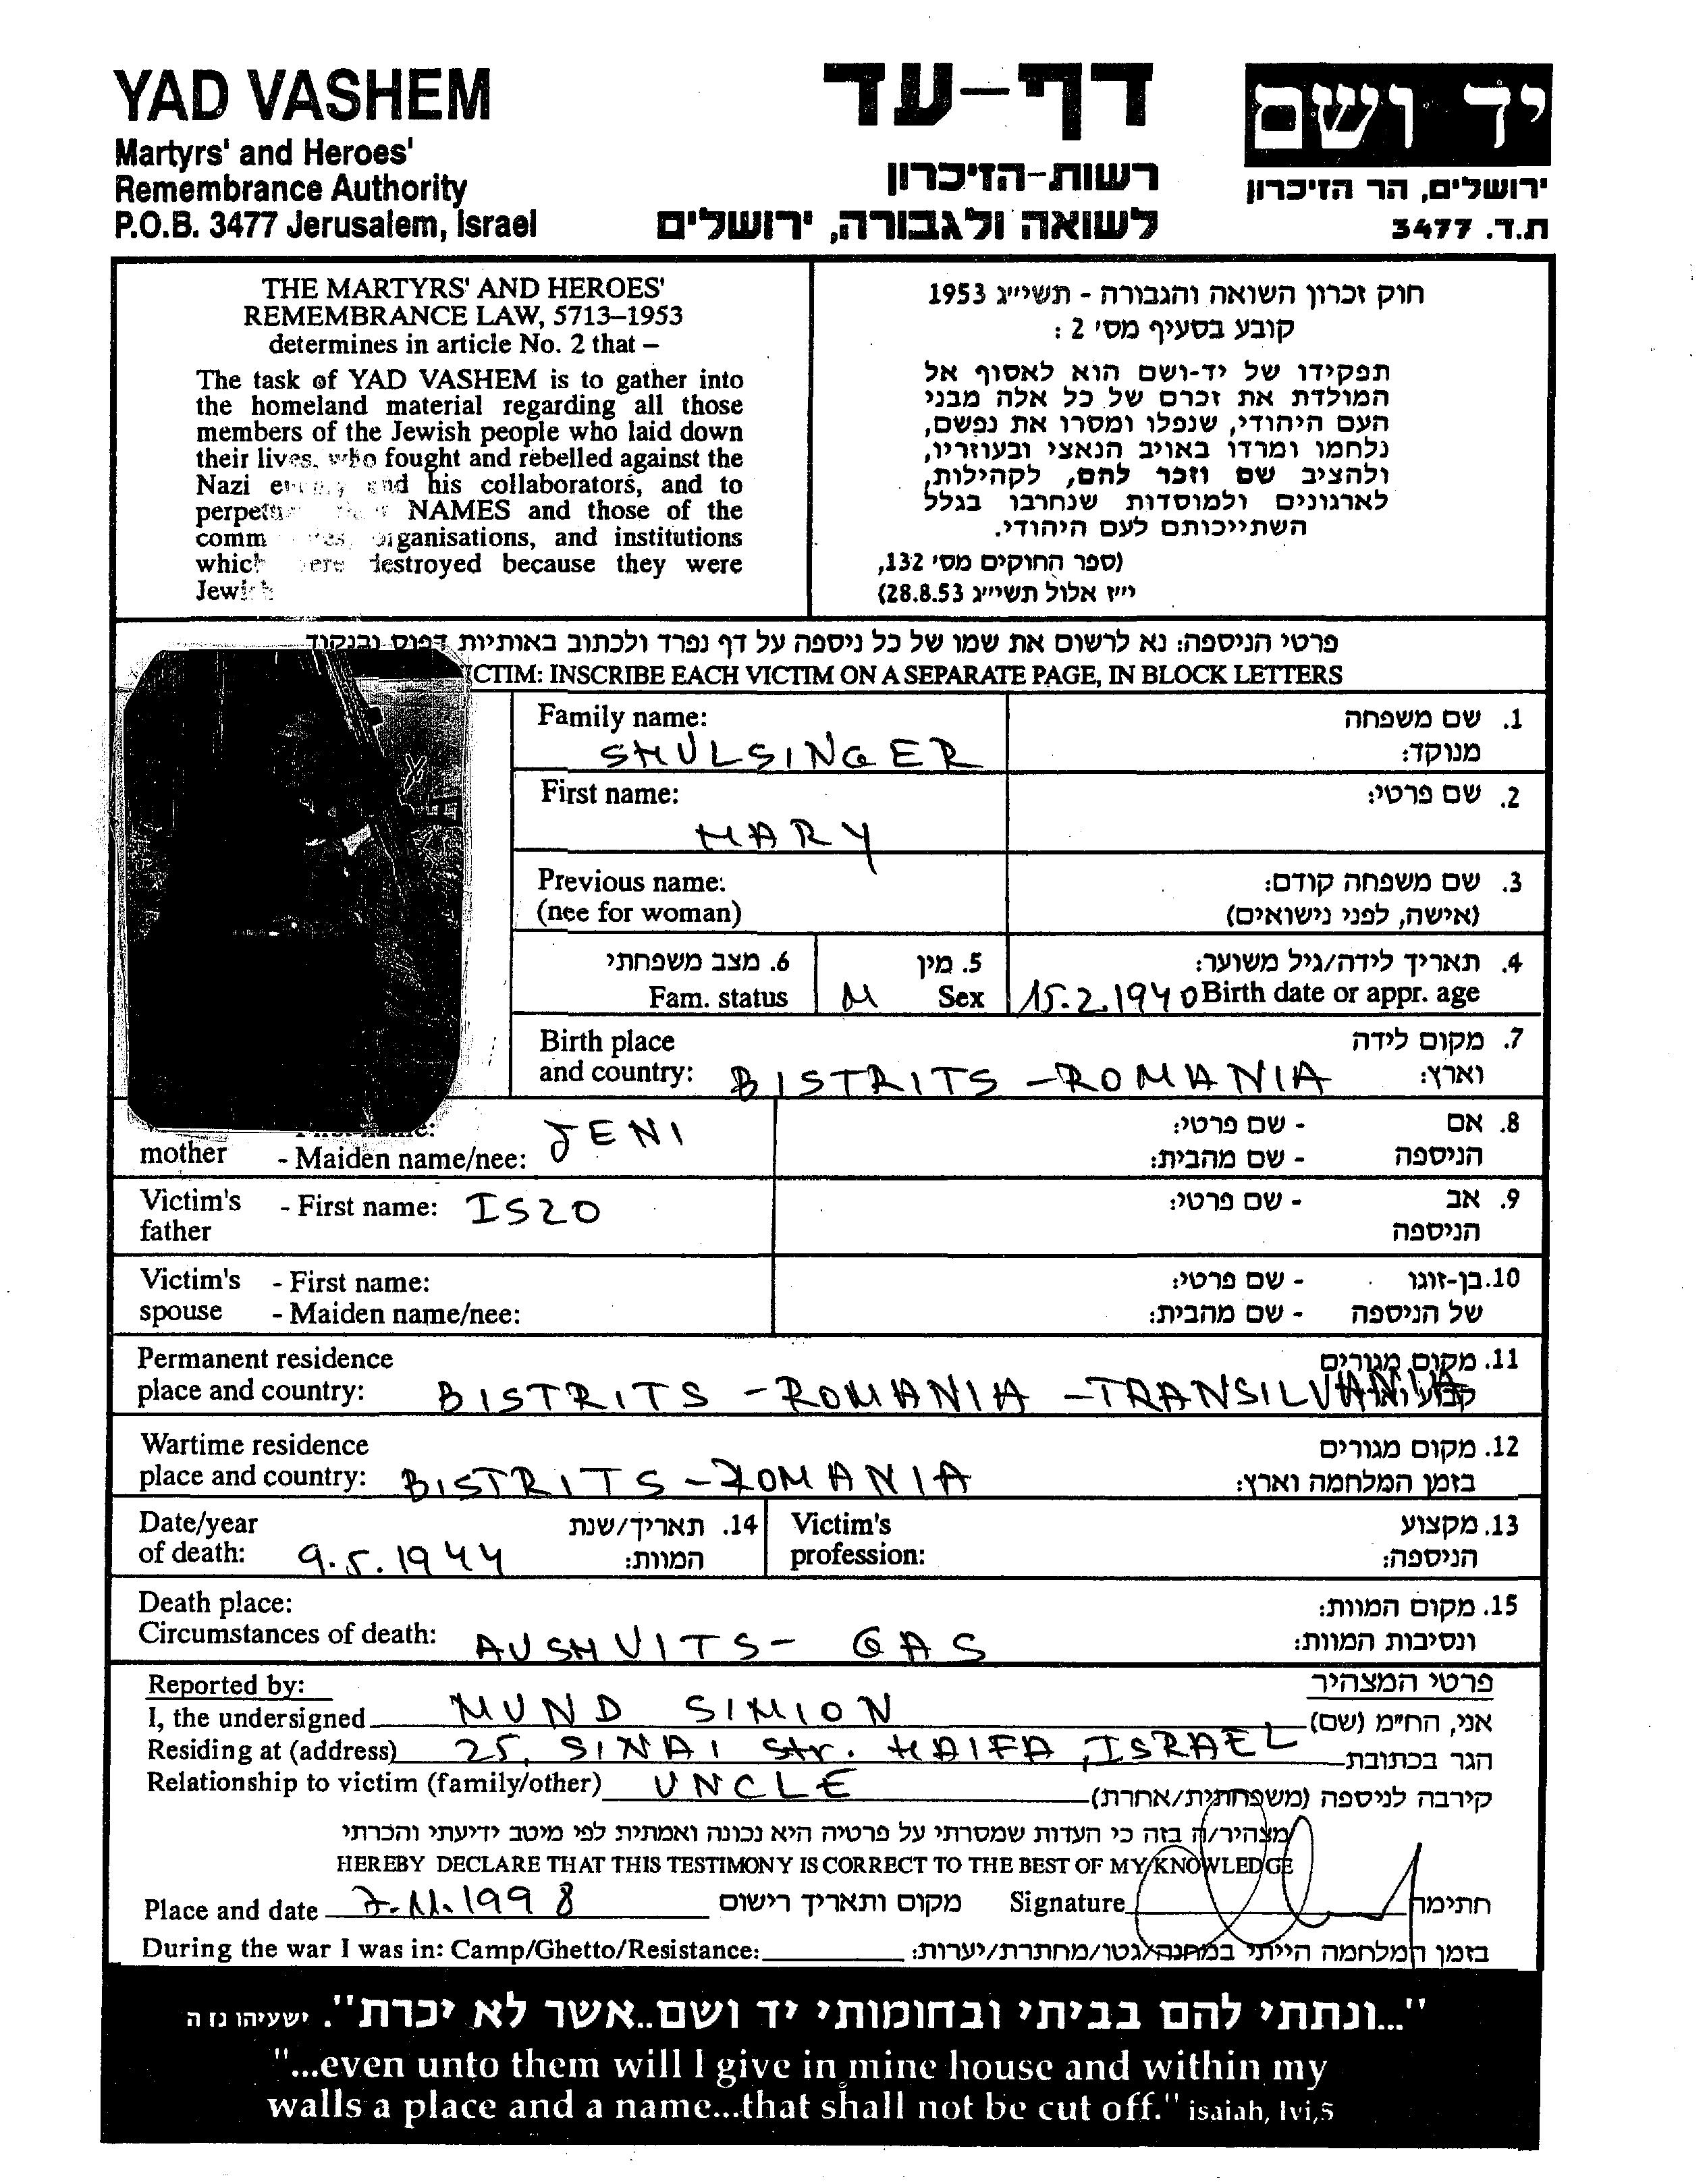 YAD VASHEM
Martyrs' and Heroes'
Remembrance Authority
P.O.B. 3477 Jerusalem, Israel
דף-עד
רשות-הזיכרון
לשואה ולגבורה, ירושלים
יד ושם
ירושלים, הר הזיכרון
ת.ד. 3477
THE MARTYRS' AND HEROES'
REMEMBRANCE LAW, 5713–1953
determines in article No. 2 that –
The task of YAD VASHEM is to gather into
the homeland material regarding all those
members of the Jewish people who laid down
their lives, who fought and rebelled against the
Nazi enemy and his collaborators, and to
NAMES and those of the
organisations, and institutions
which were destroyed because they were
חוק זכרון השואה והגבורה - תשי״ג 1953
קובע בסעיף מס׳ 2 :
תפקידו של יד-ושם הוא לאסוף אל
המולדת את זכרם של כל אלה מבני
העם היהודי, שנפלו ומסרו את נפשם,
נלחמו ומרדו באויב הנאצי ובעוזריו,
ולהציב שם וזכר להם, לקהילות,
לארגונים ולמוסדות שנחרבו בגלל
השתייכותם לעם היהודי.
(ספר החוקים מס׳ 132,
י״ז אלול תשי״ג 28.8.53)
פרטי הניספה: נא לרשום את שמו של כל ניספה על דף נפרד ולכתוב באותיות דפוס ובנקוד
CTIM: INSCRIBE EACH VICTIM ON A SEPARATE PAGE, IN BLOCK LETTERS
Family name: 1. שם משפחה
SHULSINGER מנוקד:
First name: 2. שם פרטי:
MARY
Previous name: 3. שם משפחה קודם:
(nee for woman) (אישה, לפני נישואים)
6. מצב משפחתי 5. מין 4. תאריך לידה/גיל משוער:
Fam. status M Sex 15.2.1940 Birth date or appr. age
Birth place 7. מקום לידה
and country: BISTRITS - ROMANIA וארץ:
JENI - שם פרטי: 8. אם
mother - Maiden name/nee: - שם מהבית: הניספה
Victim's - First name: ISZO - שם פרטי: 9. אב
father הניספה
Victim's - First name: - שם פרטי: 10. בן-זוגו
spouse - Maiden name/nee: - שם מהבית: של הניספה
Permanent residence 11. מקום מגורים
place and country: BISTRITS - ROMANIA - TRANSILVANIA
Wartime residence 12. מקום מגורים
place and country: BISTRITS - ROMANIA בזמן המלחמה וארץ:
Date/year 14. תאריך/שנת Victim's 13. מקצוע
of death: 9.5.1944 המוות: profession: הניספה:
Death place: 15. מקום המוות:
Circumstances of death: AUSHVITS - GAS ונסיבות המוות:
Reported by: פרטי המצהיר
I, the undersigned MUND SIMION אני, הח״מ (שם)
Residing at (address) 25, SINAI str. HAIFA, ISRAEL הגר בכתובת
Relationship to victim (family/other) UNCLE קירבה לניספה (משפחתית/אחרת)
מצהיר/ה בזה כי העדות שמסרתי על פרטיה היא נכונה ואמתית לפי מיטב ידיעתי והכרתי
HEREBY DECLARE THAT THIS TESTIMONY IS CORRECT TO THE BEST OF MY KNOWLEDGE
Place and date 7.11.1998 מקום ותאריך רישום Signature חתימה
During the war I was in: Camp/Ghetto/Resistance: בזמן המלחמה הייתי במחנה/גטו/מחתרת/יערות:
"...ונתתי להם בביתי ובחומותי יד ושם..אשר לא יכרת". ישעיהו נו ה
"...even unto them will I give in mine house and within my
walls a place and a name...that shall not be cut off." isaiah, lvi,5